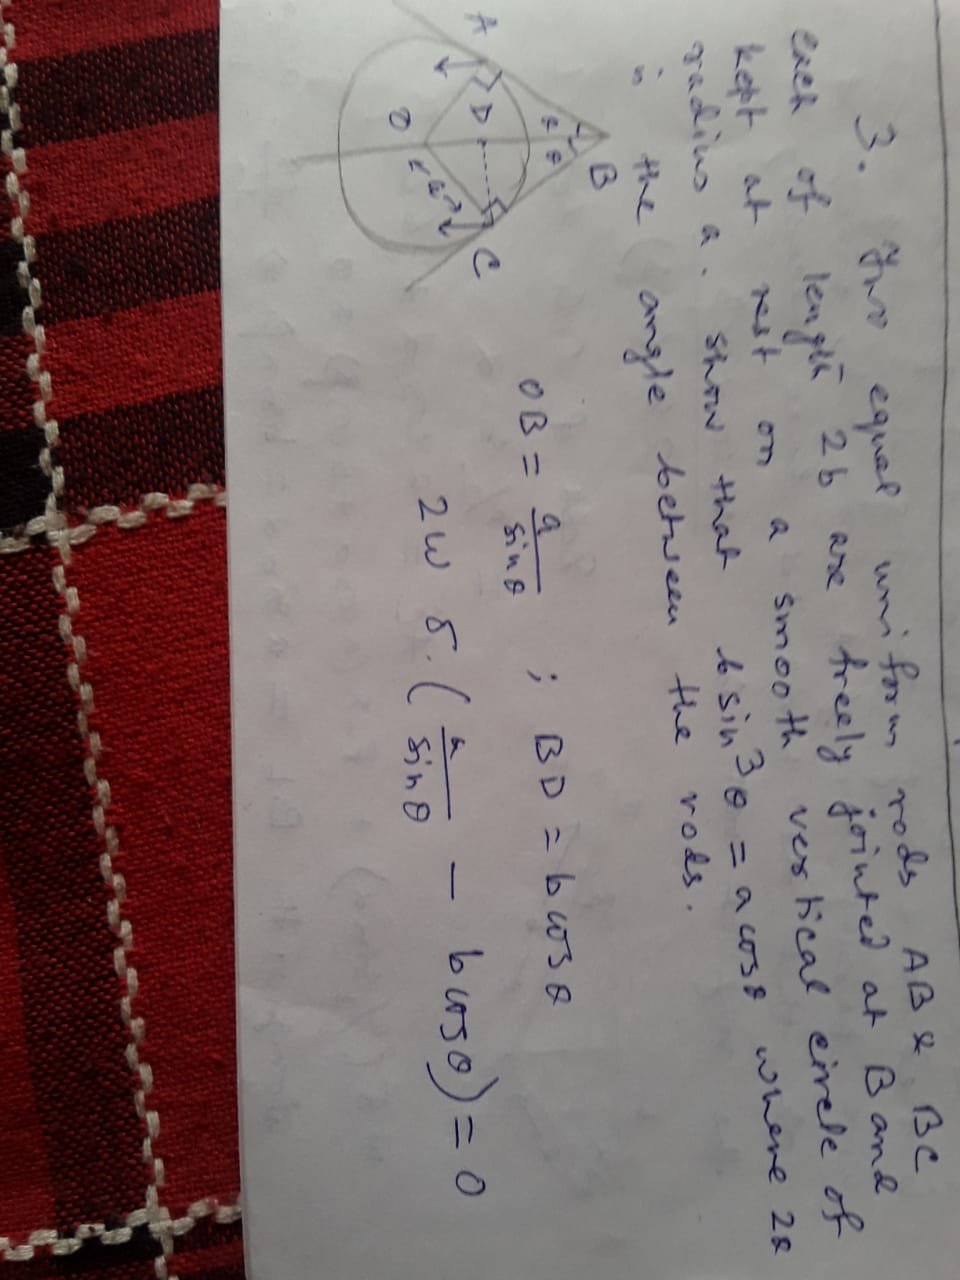 3. Two equal uniform rods AB & BC
each of length 2b are freely jointed at B and
kept at rest on a smooth vertical circle of
radius a. show that b sin³θ = a cosθ where 2θ
is the angle between the rods.
B
θ
A
D
C
a
O
OB = a/sinθ ; BD = b cosθ
2w δ.(a/sinθ - b cosθ) = 0